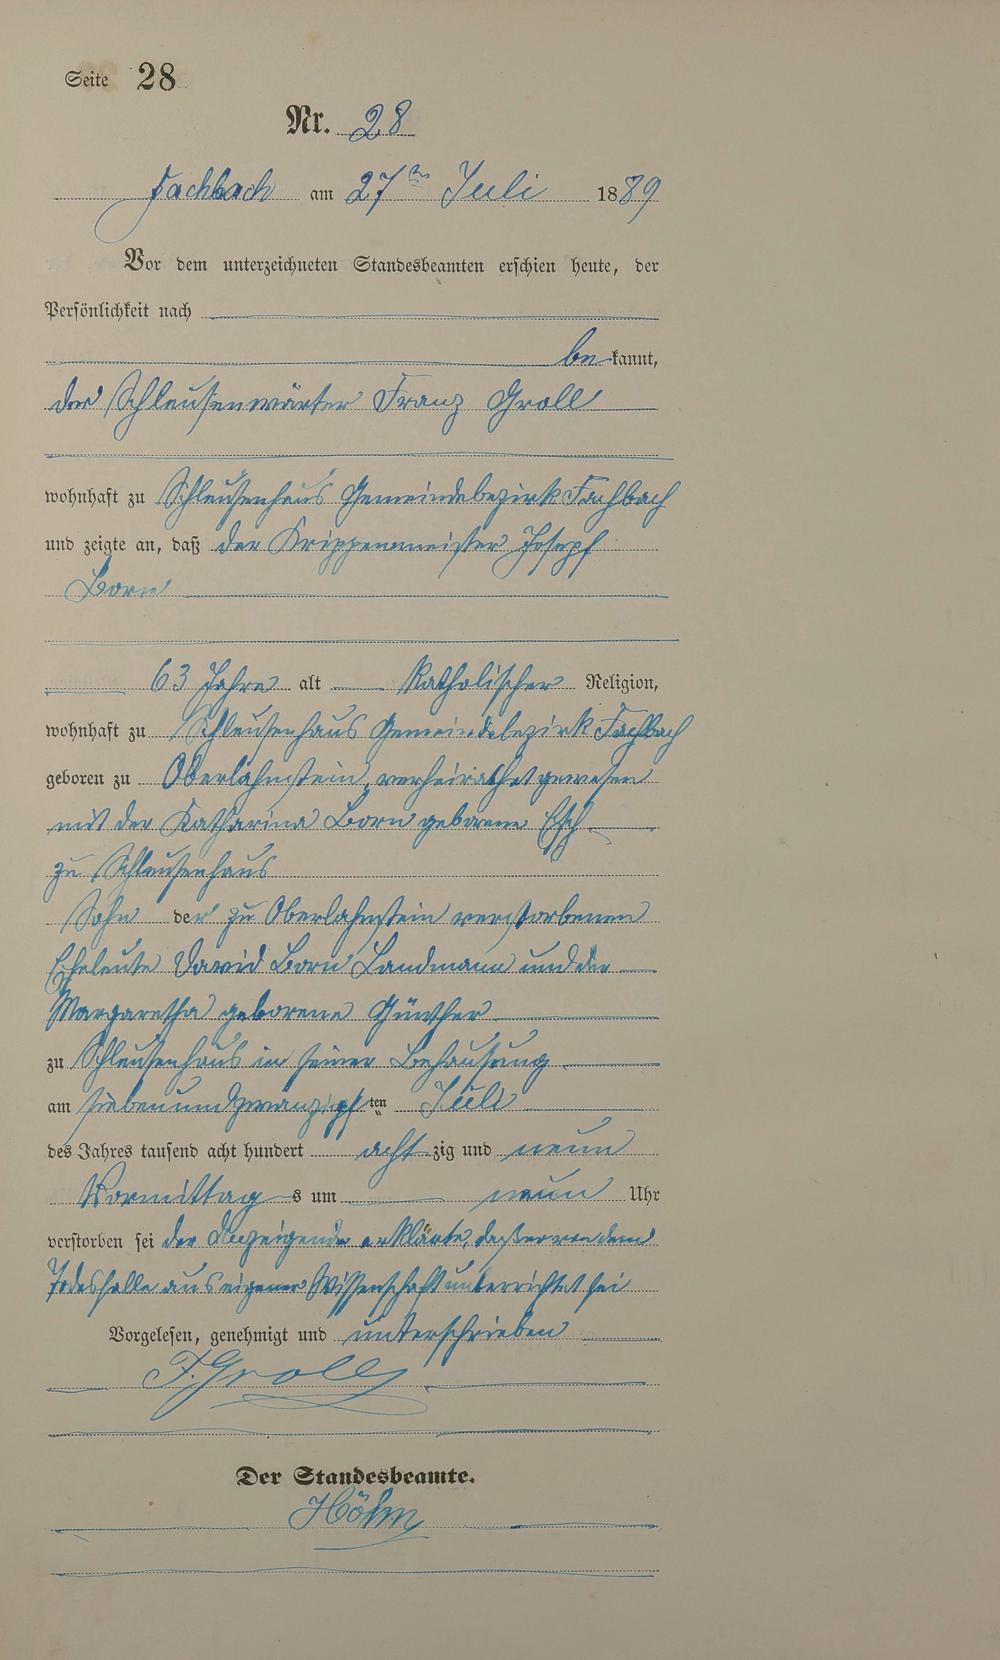 Seite 28
Nr. 28
Fachbach am 27ten Juli 1889
Vor dem unterzeichneten Standesbeamten erschien heute, der
Persönlichkeit nach
be kannt,
der Schleusenwärter Franz Groll
wohnhaft zu Schleusenhaus Gemeindebezirk Fachbach
und zeigte an, daß der Krippenmeister Joseph
Born
63 Jahre alt katholischer Religion,
wohnhaft zu Schleusenhaus Gemeindebezirk Fachbach
geboren zu Oberlahnstein, verheirathet gewesen
mit der Katharina Born geborene Esch
zu Schleusenhaus
Sohn der zu Oberlahnstein verstorbenen
Eheleute David Born Landmann und der
Margaretha geborene Günther
zu Schleusenhaus in seiner Behausung
am siebenundzwanzigsten Juli
des Jahres tausend acht hundert acht zig und neun
Vormittag s um neun Uhr
verstorben sei der Anzeigende erklärte, daß er von dem
Todesfalle aus eigener Wissenschaft unterrichtet sei
Vorgelesen, genehmigt und unterschrieben
F. Groll
Der Standesbeamte.
Höhn